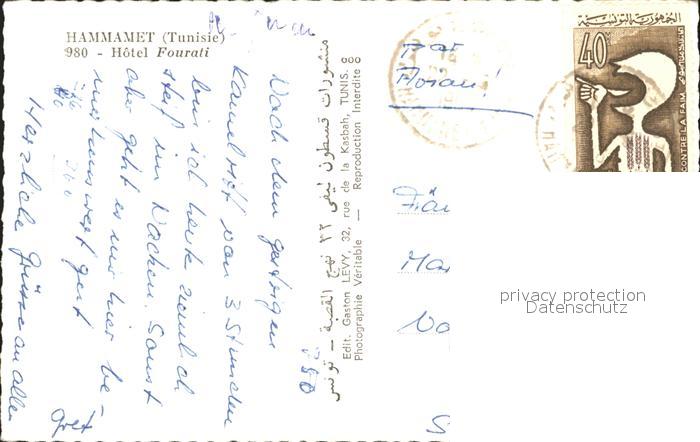 HAMMAMET (Tunisie)
980 - Hôtel Fourati
Nach dem gestrigen
Kamelritt von 3 Stunden
bin ich heute ziemlich
steif im Nacken. Sonst
aber geht es mir hier be-
gut
Herzliche Grüsse an alle
Gret
منشورات قسطون ليفي ٣٢ نهج القصبة – تونس
Edit. Gaston LEVY, 32, rue de la Kasbah, TUNIS.
Photographie Véritable — Reproduction Interdite
par
Avion!
Frä
Mar
الجمهورية التونسية
40
CONTRE LA FAIM
privacy protection
Datenschutz